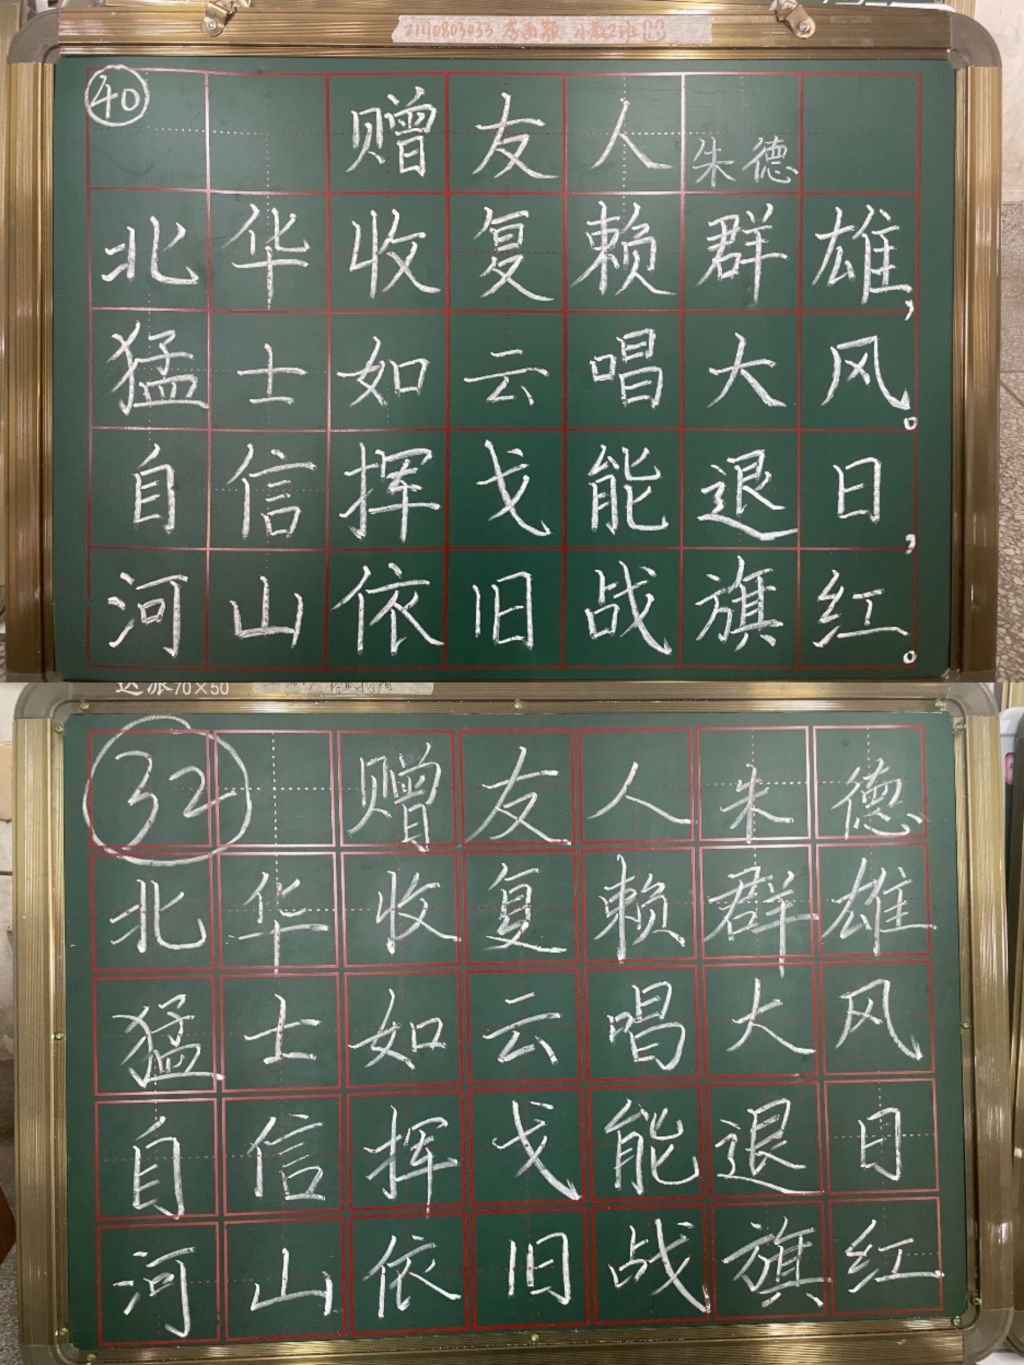 21110803033 小教2班
40
赠友人 朱德
北华收复赖群雄,
猛士如云唱大风。
自信挥戈能退日,
河山依旧战旗红。
70×50
32
赠友人朱德
北华收复赖群雄
猛士如云唱大风
自信挥戈能退日
河山依旧战旗红